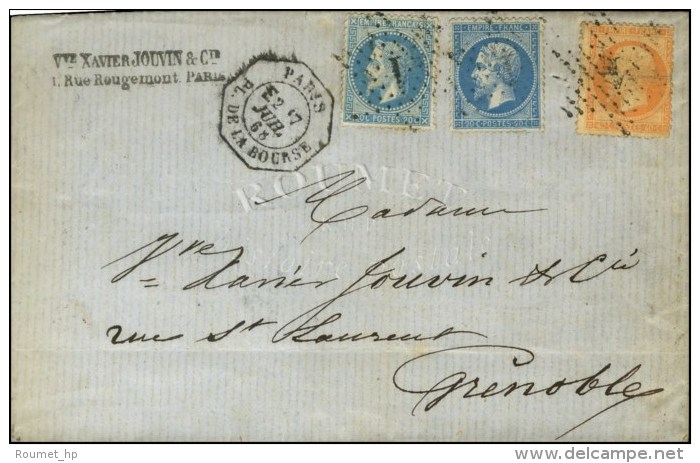 Vve XAVIER JOUVIN & Cie
1, Rue Rougemont, PARIS
PARIS
E2 17
JUIL.
68
PL. DE LA BOURSE
EMPIRE FRANÇAIS
20c POSTES 20c
EMPIRE FRANC
20c POSTES 20c
1
ROUMET
Madame
Vve Xavier Jouvin & Cie
rue St Laurent
Grenoble
Roumet_hp
©delcampe.net